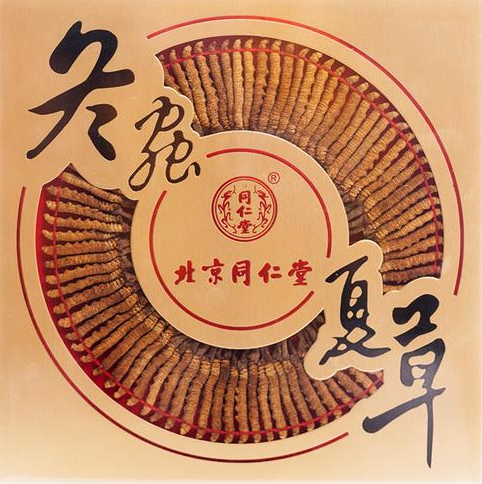 冬
蟲
同仁堂
®
北京同仁堂
夏
草